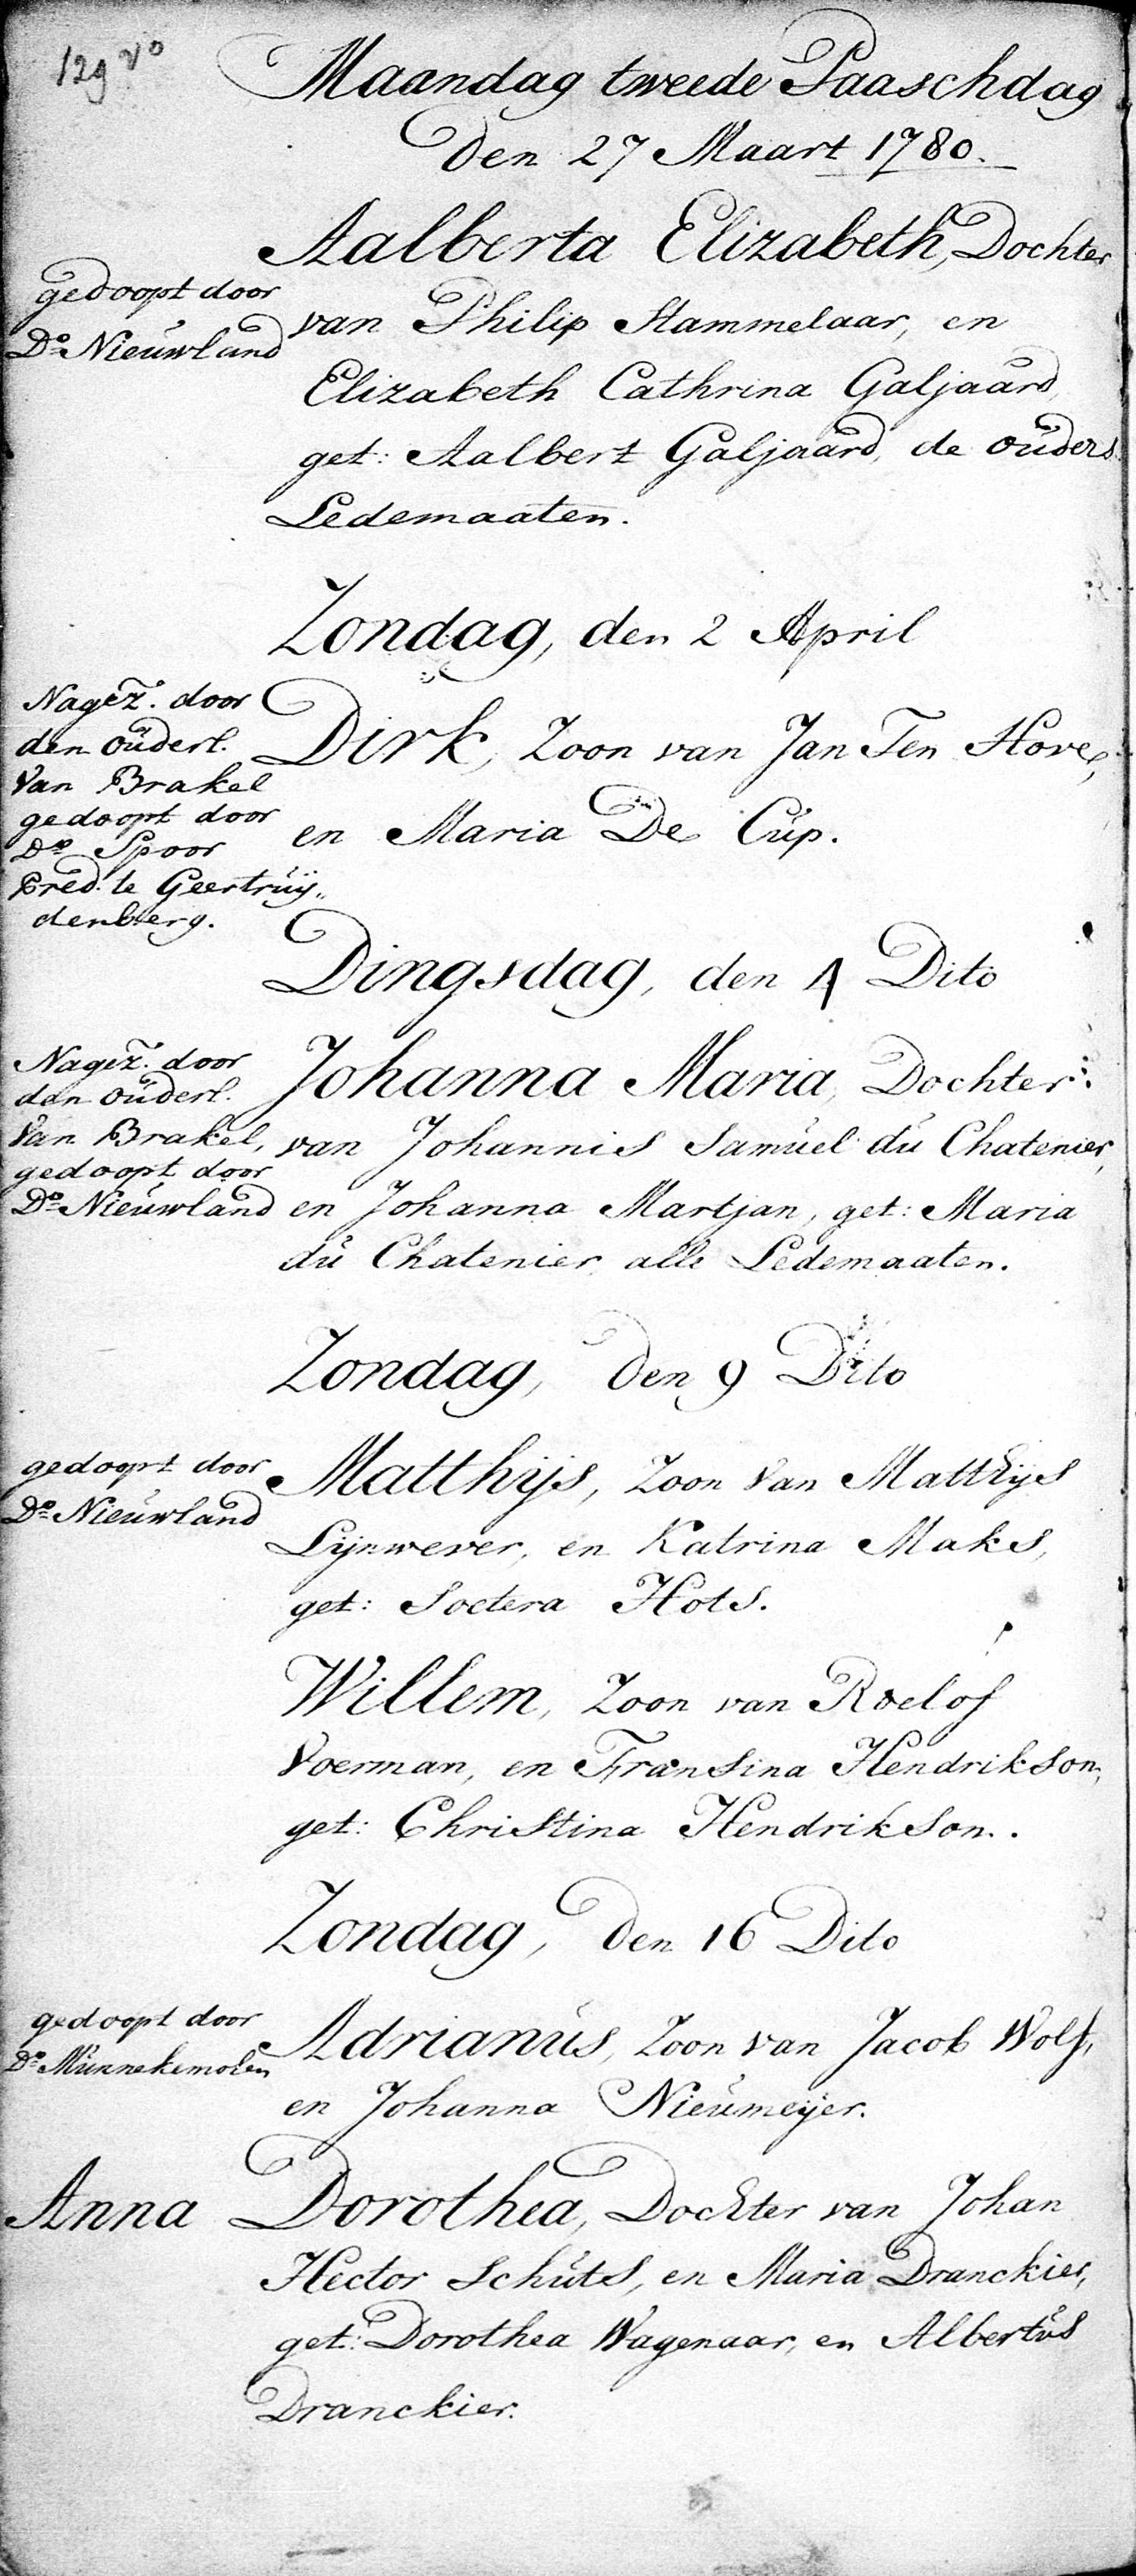 129 vo
Maandag tweede Paaschdag
den 27 Maart 1780.
gedoopt door
Do. Nieuwland
Aalberta Elizabeth, Dochter
van Philip Stammelaar, en
Elizabeth Cathrina Galjaard,
get: Aalbert Galjaard, de ouders
Ledemaaten.
Zondag, den 2 April
Nagez. door
den ouderl.
Van Brakel
gedoopt door
Do. Spoor
Pred. te Geertruij„
denberg.
Dirk, Zoon van Jan Ten Hove,
en Maria De Cup.
Dingsdag, den 4 Dito
Nagez. door
den ouderl.
Van Brakel,
gedoopt door
Do. Nieuwland
Johanna Maria, Dochter
van Johannis Samuel du Chatenier,
en Johanna Martjan, get: Maria
du Chatenier alle Ledemaaten.
Zondag, den 9 Dito
gedoopt door
Do. Nieuwland
Matthijs, Zoon Van Matthijs
Lijnwever, en Katrina Maks,
get: Soetera Hots.
Willem, Zoon van Roelof
Voerman, en Fransina Hendrikson,
get: Christina Hendrikson.
Zondag, den 16 Dito
gedoopt door
Do. Munnekemolen
Adrianus, Zoon van Jacob Wolf,
en Johanna Nieumeijer.
Anna Dorothea, Dochter van Johan
Hector Schuts, en Maria Dranckier,
get: Dorothea Wagenaar, en Albertus
Dranckier.